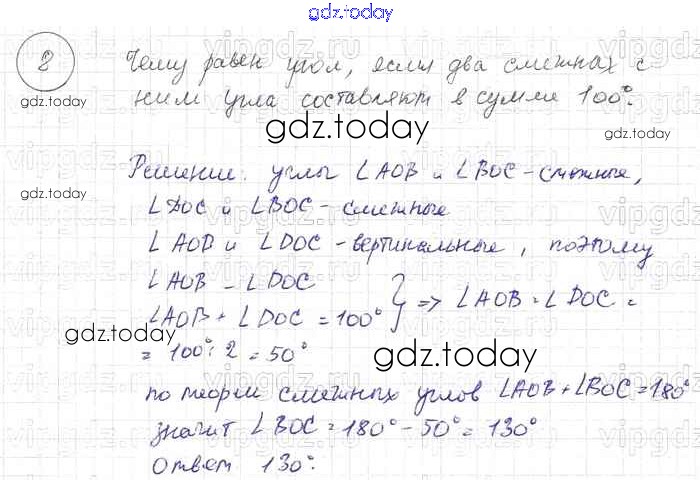 gdz.today
8
Чему равен угол, если два смежнах с
gdz.today
ним угла составляют в сумме 100°.
gdz.today
Решение: углы ∠AOB и ∠BOC - смежные,
gdz.today
∠DOC и ∠BOC - смежные
∠AOB и ∠DOC - вертикальные, поэтому
∠AOB = ∠DOC
∠AOB + ∠DOC = 100° } => ∠AOB = ∠DOC =
gdz.today
= 100° : 2 = 50°
gdz.today
по теорем смежных углов ∠AOB + ∠BOC = 180°
значит ∠BOC = 180° - 50° = 130°
Ответ 130°.